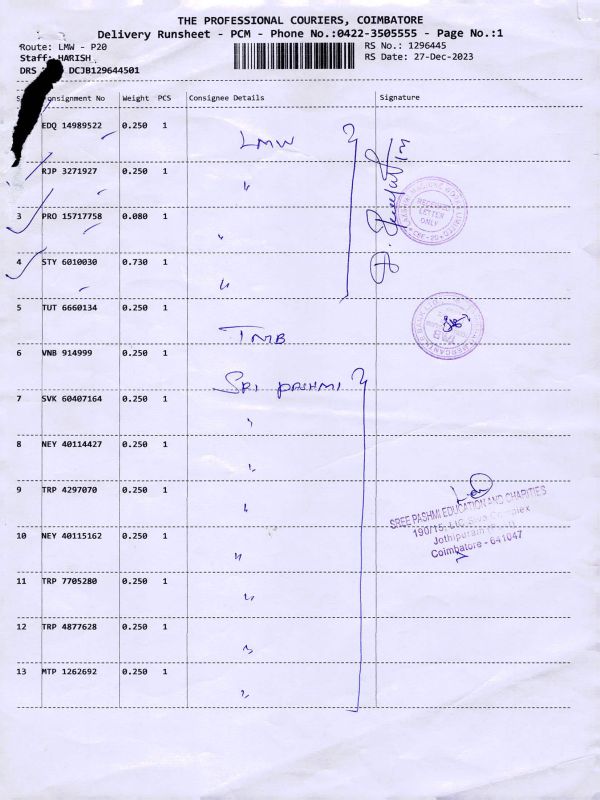 THE PROFESSIONAL COURIERS, COIMBATORE
Delivery Runsheet - PCM - Phone No.:0422-3505555 - Page No.:1
Route: LMW - P20
RS No.: 1296445
Staff: HARISH
RS Date: 27-Dec-2023
DRS DCJB129644501
Consignment No Weight PCS Consignee Details Signature
EDQ 14989522 0.250 1
LMW
RJP 3271927 0.250 1
"
3 PRO 15717758 0.080 1
"
RECEIVED
LETTER
ONLY
CBE-20
4 STY 6010030 0.730 1
"
5 TUT 6660134 0.250 1
TMB
6 VNB 914999 0.250 1
SRI PASHMI
7 SVK 60407164 0.250 1
"
8 NEY 40114427 0.250 1
"
9 TRP 4297070 0.250 1
"
SREE PASHMI EDUCATION AND CHARITIES
190/15, LIC Complex
Jothipuram
Coimbatore - 641047
10 NEY 40115162 0.250 1
"
11 TRP 7705280 0.250 1
"
12 TRP 4877628 0.250 1
"
13 MTP 1262692 0.250 1
"